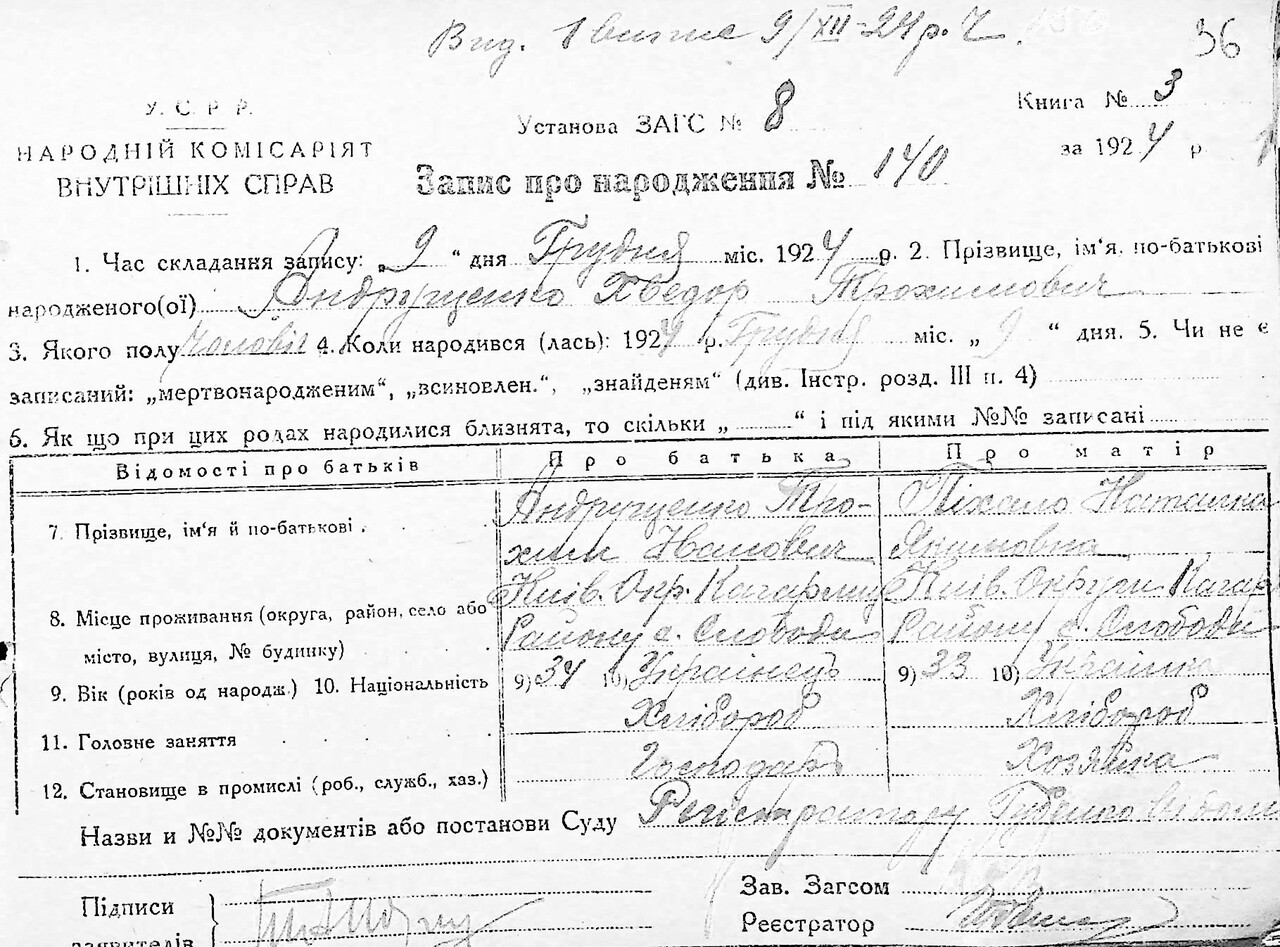 Вид. 1 9/XII-24 р. 36
У. С. Р. Р.
НАРОДНІЙ КОМІСАРІЯТ
ВНУТРІШНІХ СПРАВ
Установа ЗАГС № 8
Книга № 3
за 1924 р.
Запис про народження № 140
1. Час складання запису: „9“ дня Грудня міс. 1924 р. 2. Прізвище, ім‘я, по-батькові
народженого(ої) Андрущенко Хведор Трохимович
3. Якого полу Чоловіч 4. Коли народився (лась): 1924 р. Грудня міс. „9“ дня. 5. Чи не є
записаний: „мертвонародженим“, „всиновлен.“, „знайденям“ (див. Інстр. розд. III п. 4)
6. Як що при цих родах народилися близнята, то скільки „ “ і під якими №№ записані
Відомості про батьків Про батька Про матір
7. Прізвище, ім‘я й по-батькові . Андрущенко Тро-
хим Іванович
Піхало Наталка
Якимовна
8. Місце проживання (округа, район, село або
місто, вулиця, № будинку)
Київ. Окр. Кагарлиц
Району с. Слободи
Київ. Округи Кагар
Району с. Слободи
9. Вік (років од народж.) 10. Національність 9) 34 10) Українець 9) 33 10) Українка
11. Головне заняття Хлібороб Хлібороб
12. Становище в промислі (роб., служб., хаз.) Господарь Хозяйка
Назви и №№ документів або постанови Суду Регістратору
Підписи
заявителів
Зав. Загсом
Реєстратор